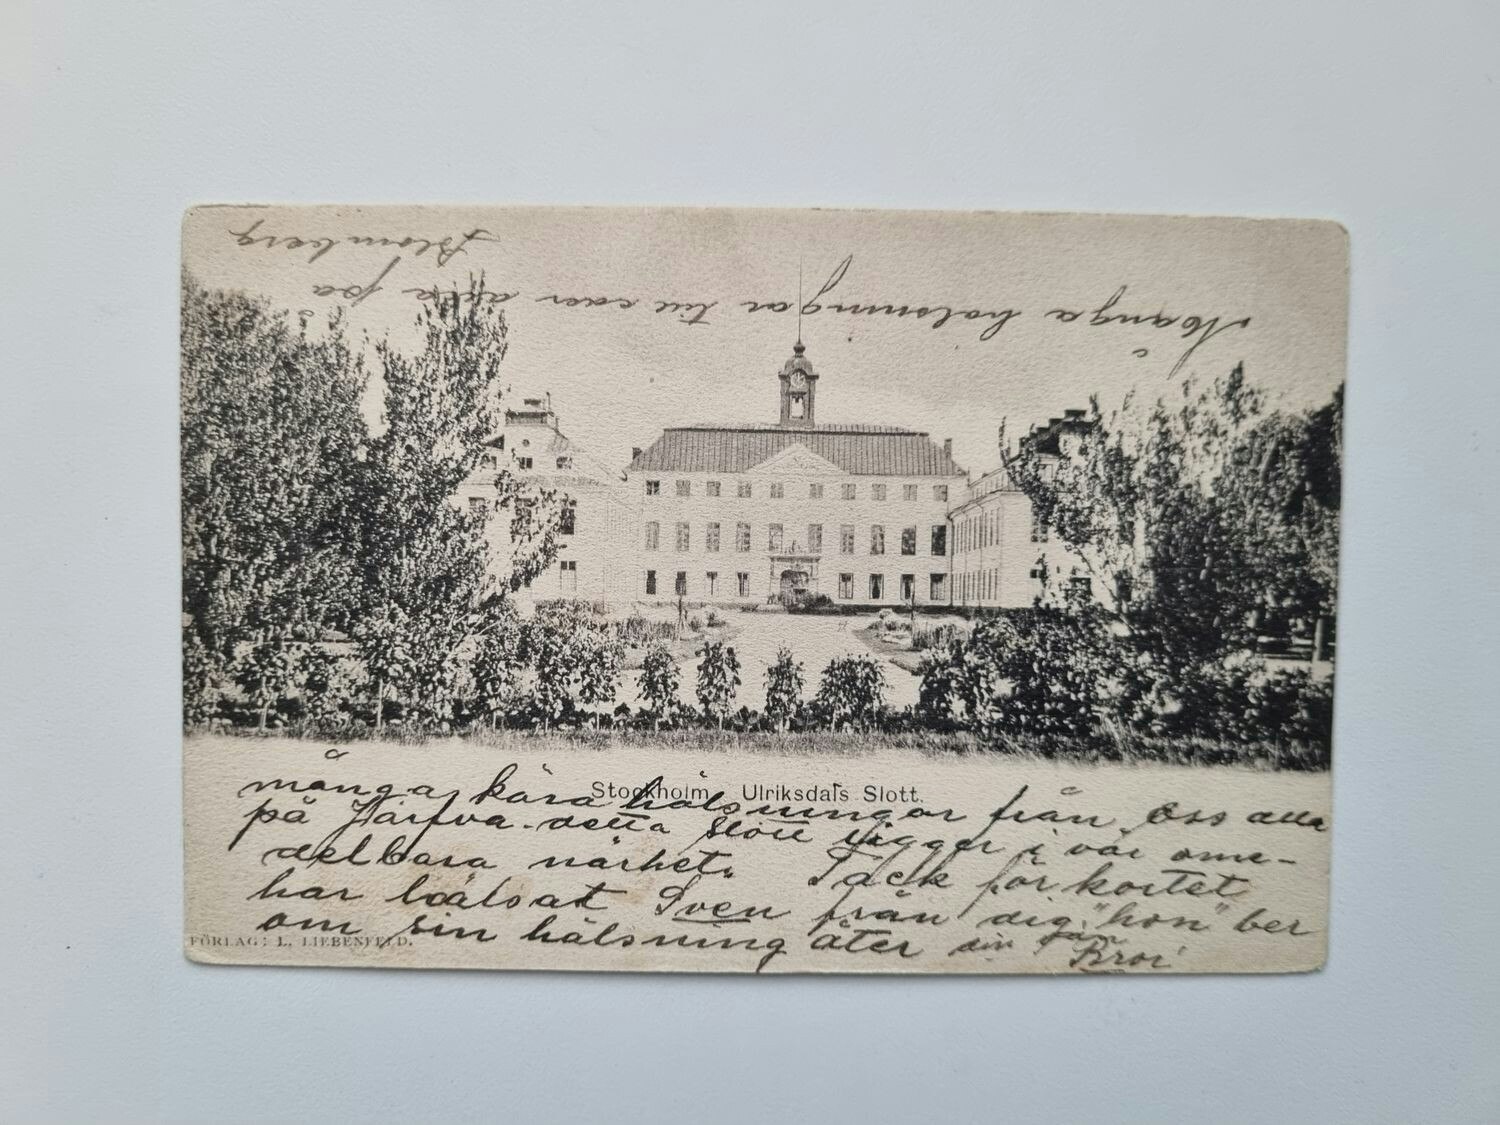 Många hälsningar till eder alla på
Blomberg
Stockholm. Ulriksdals Slott.
många, kära hälsningar från oss alla
på Järfva. detta slott ligger i vår ome-
delbara närhet. Tack för kortet
har hälsat Sven från dig, "hon" ber
om sin hälsning åter din
Bror
FÖRLAG: L. LIEBENFELD.